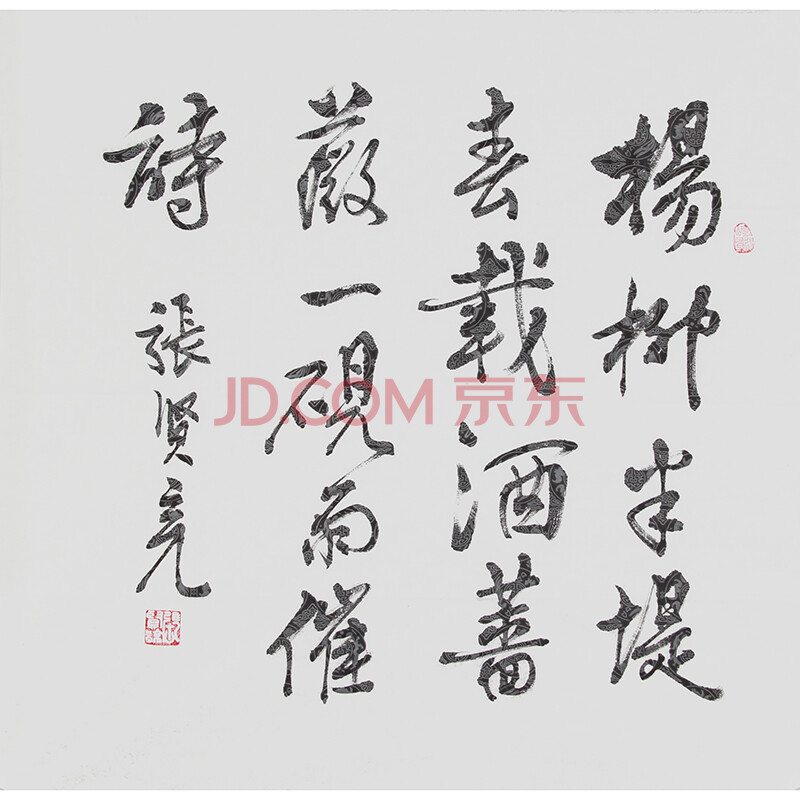 楊柳半堤
春載酒薔
薇一硯雨催
詩
張賢亮
JD.COM 京东